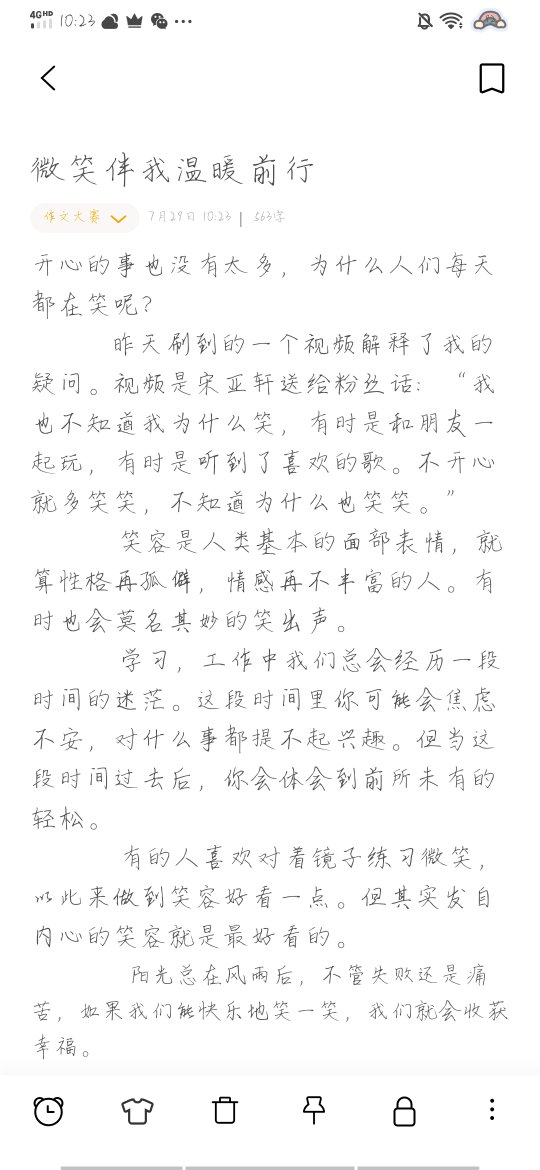 4G HD 10:23
微笑伴我温暖前行
作文大赛 7月29日 10:23 | 563字
开心的事也没有太多，为什么人们每天
都在笑呢？
昨天刷到的一个视频解释了我的
疑问。视频是宋亚轩送给粉丝话：“我
也不知道我为什么笑，有时是和朋友一
起玩，有时是听到了喜欢的歌。不开心
就多笑笑，不知道为什么也笑笑。”
笑容是人类基本的面部表情，就
算性格再孤僻，情感再不丰富的人。有
时也会莫名其妙的笑出声。
学习，工作中我们总会经历一段
时间的迷茫。这段时间里你可能会焦虑
不安，对什么事都提不起兴趣。但当这
段时间过去后，你会体会到前所未有的
轻松。
有的人喜欢对着镜子练习微笑，
以此来做到笑容好看一点。但其实发自
内心的笑容就是最好看的。
阳光总在风雨后，不管失败还是痛
苦，如果我们能快乐地笑一笑，我们就会收获
幸福。